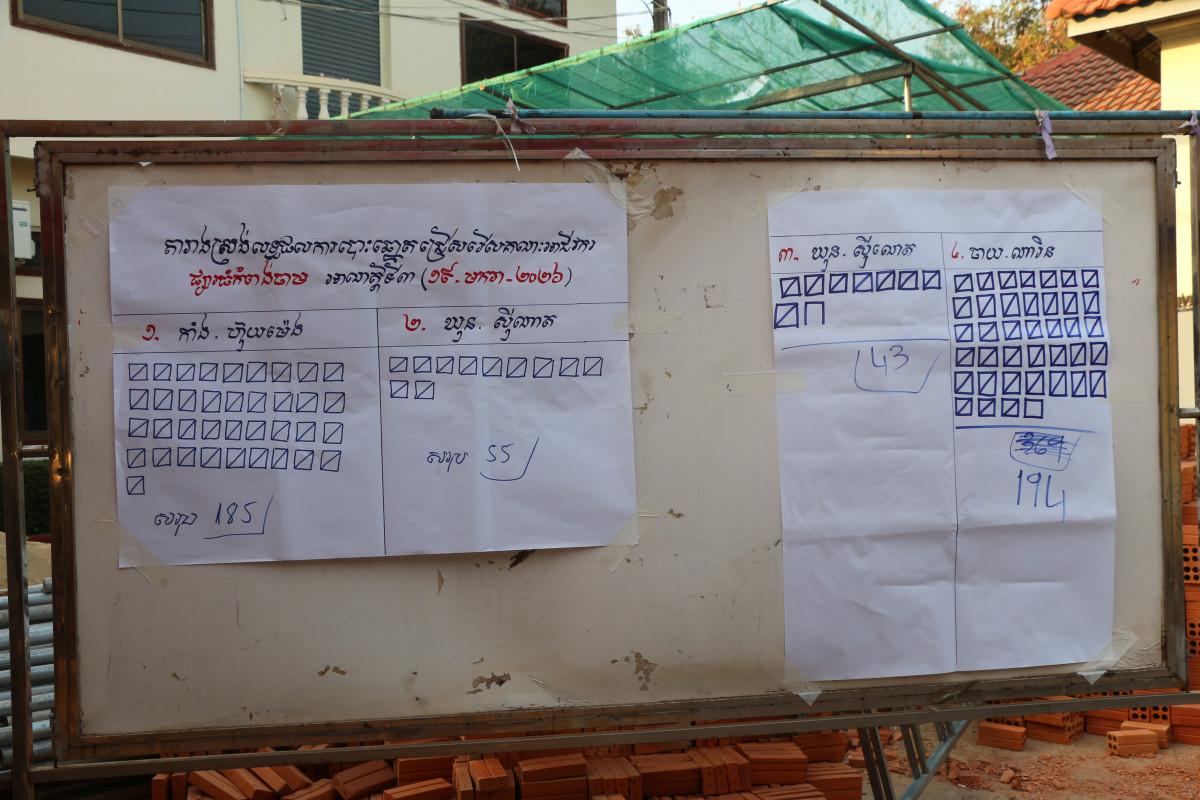 តារាងស្រង់លទ្ធផលការបោះឆ្នោតជ្រើសរើសគណៈអាជីវករ
ផ្សារធំកំពង់ចាម អាណត្តិទី៣ (១៩-មករា-២០២៦)
១. កាំង. ហ៊ុយម៉េង
២. ឃុន. ស៊ីណាត
សរុប 185
សរុប 55
៣. ឃុន. ស៊ីណេត
៤. ចាយ. ណារិន
43
194